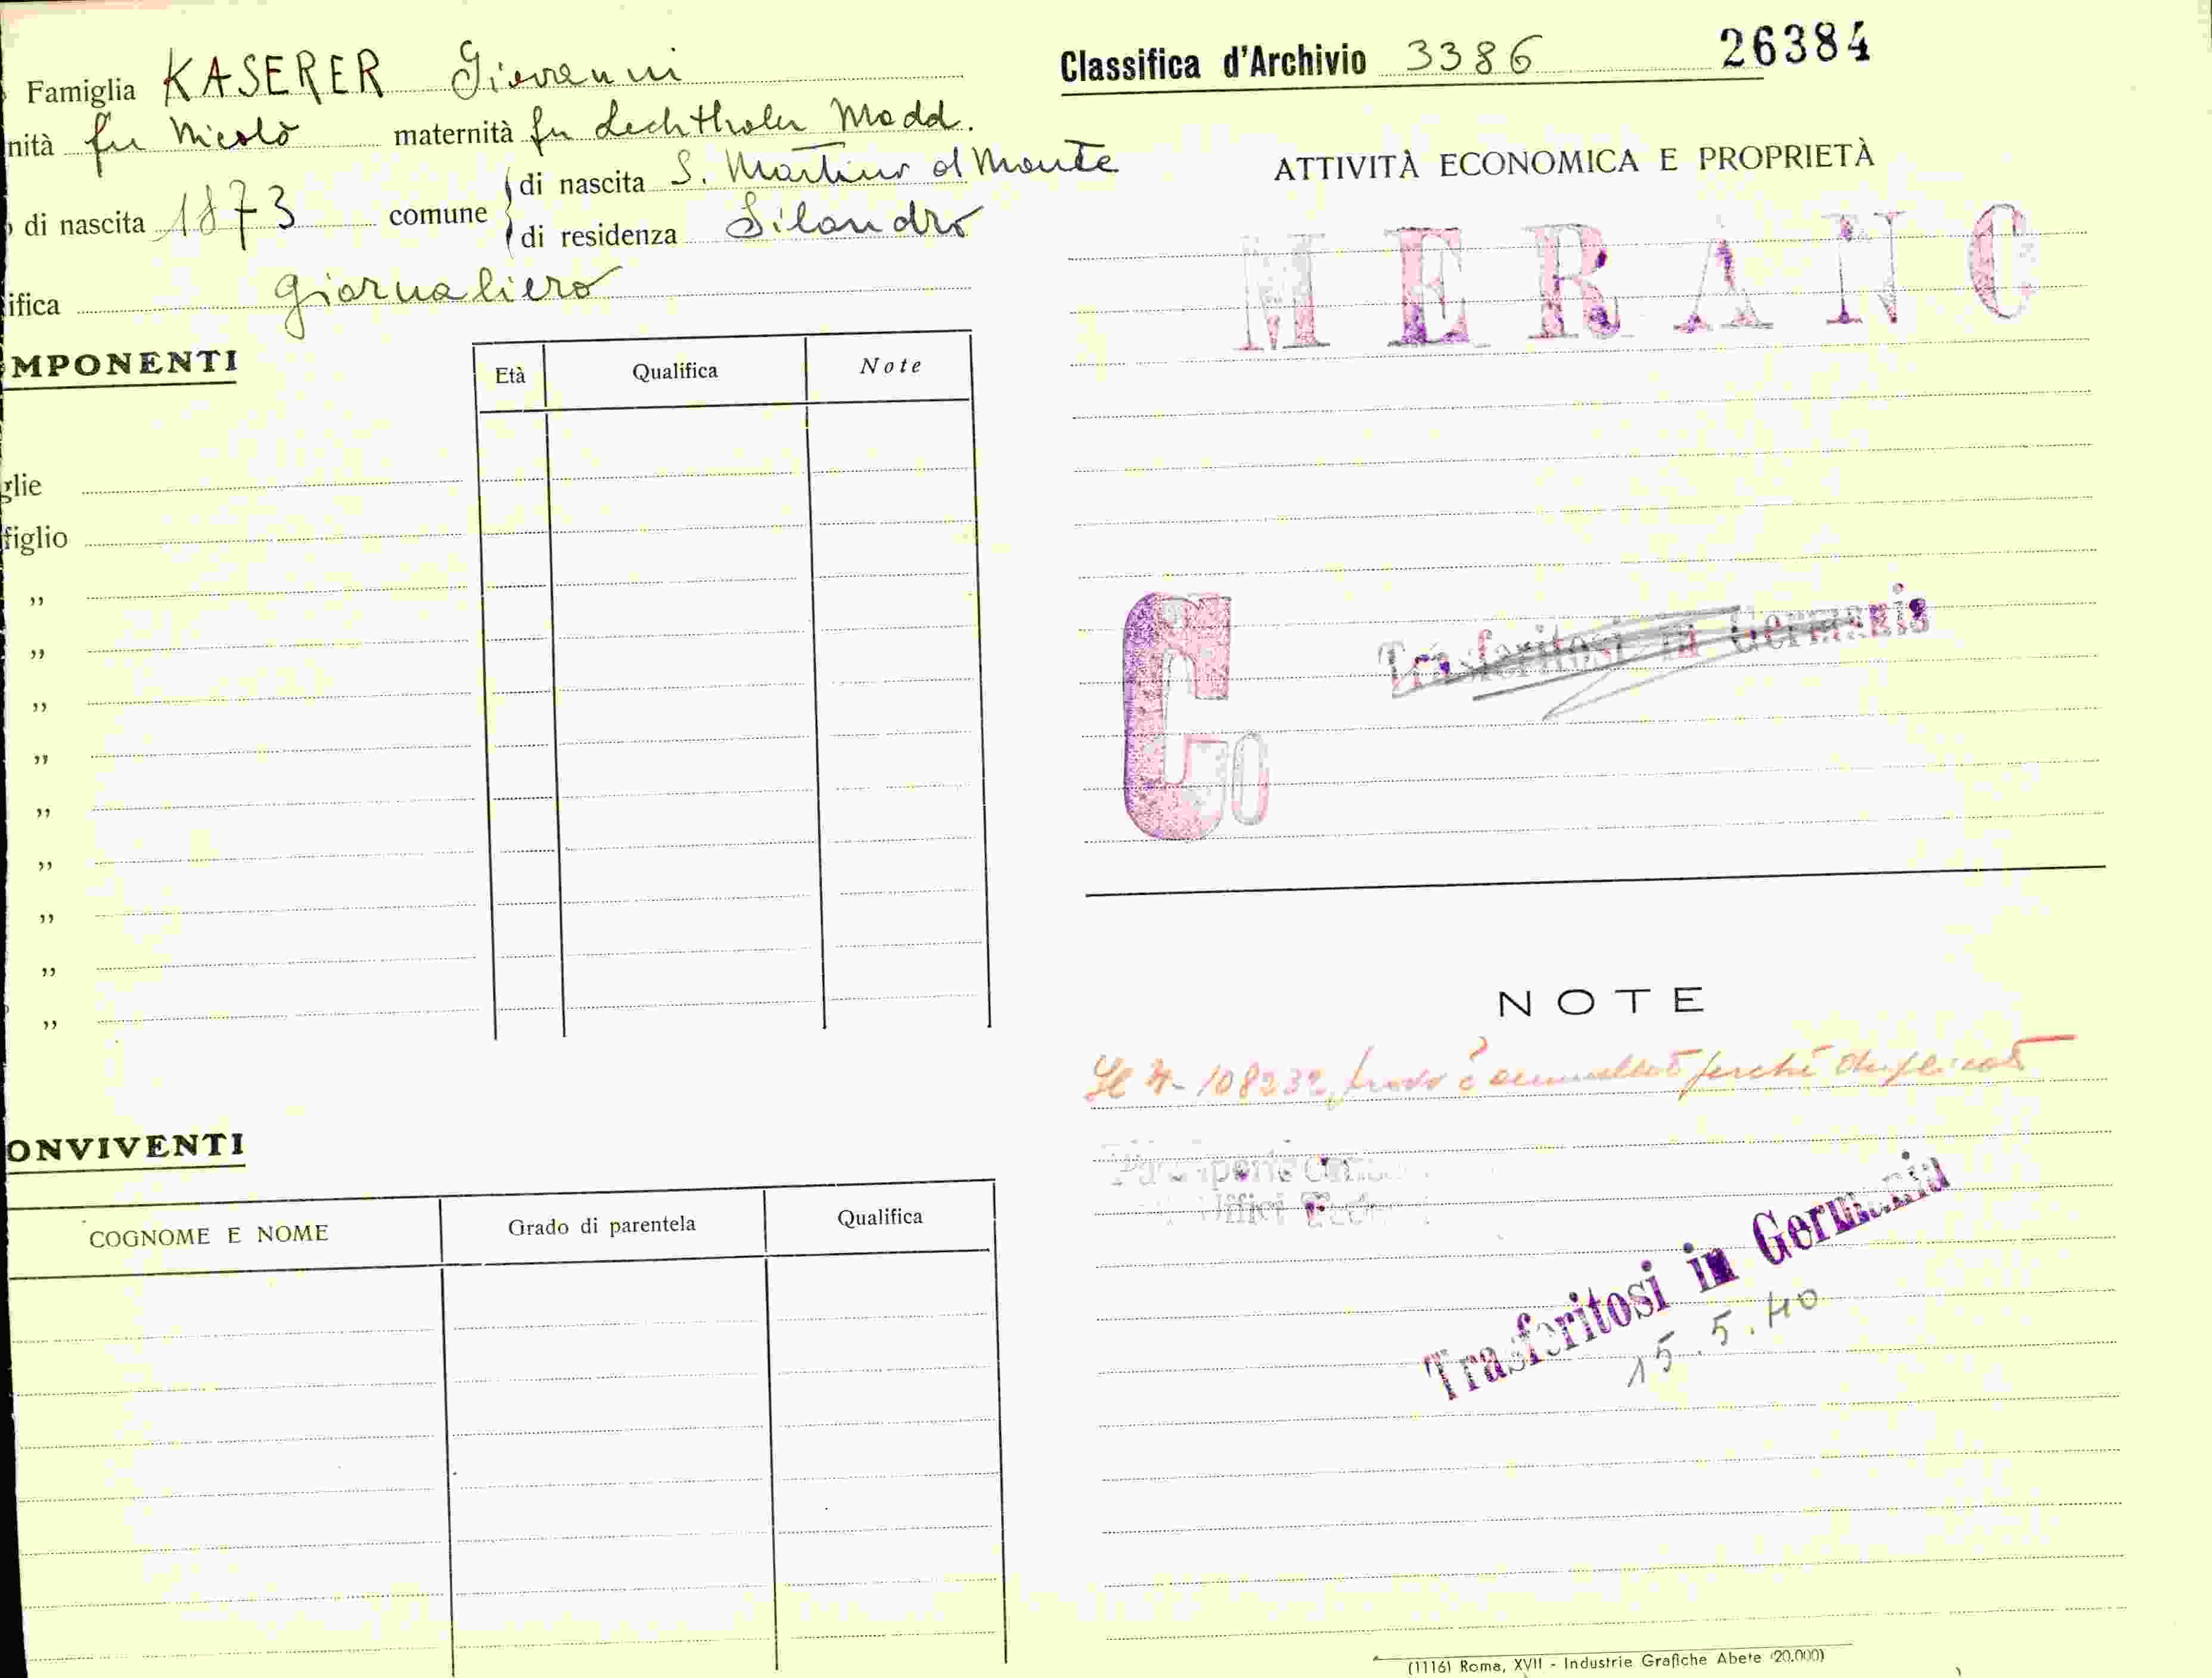 Famiglia KASERER Giovanni
nità fu Nicolò maternità fu Lechthaler Madd.
di nascita 1873 comune di nascita S. Martino al Monte
di residenza Silandro
ifica giornaliero
MPONENTI
Età Qualifica Note
glie
figlio
„
„
„
„
„
„
„
„
„
ONVIVENTI
COGNOME E NOME Grado di parentela Qualifica
Classifica d'Archivio 3386 26384
ATTIVITÀ ECONOMICA E PROPRIETÀ
MERANO
Trasferitosi in Germania
C
NOTE
Il N- 108232 è annullato perchè duplicato
Trasferitosi in Germania
15.5.40
(1116) Roma, XVII - Industrie Grafiche Abete (20.000)